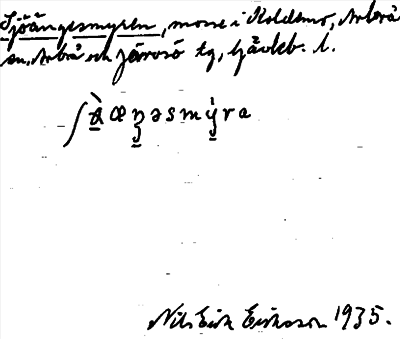 Sjöängesmyren, mosse i Koldemo, Arbrå
sn, Arbrå och Järvsö tg, Gävleb. l.
ʃæŋəsmyra
Nils Erik Eriksson 1935.